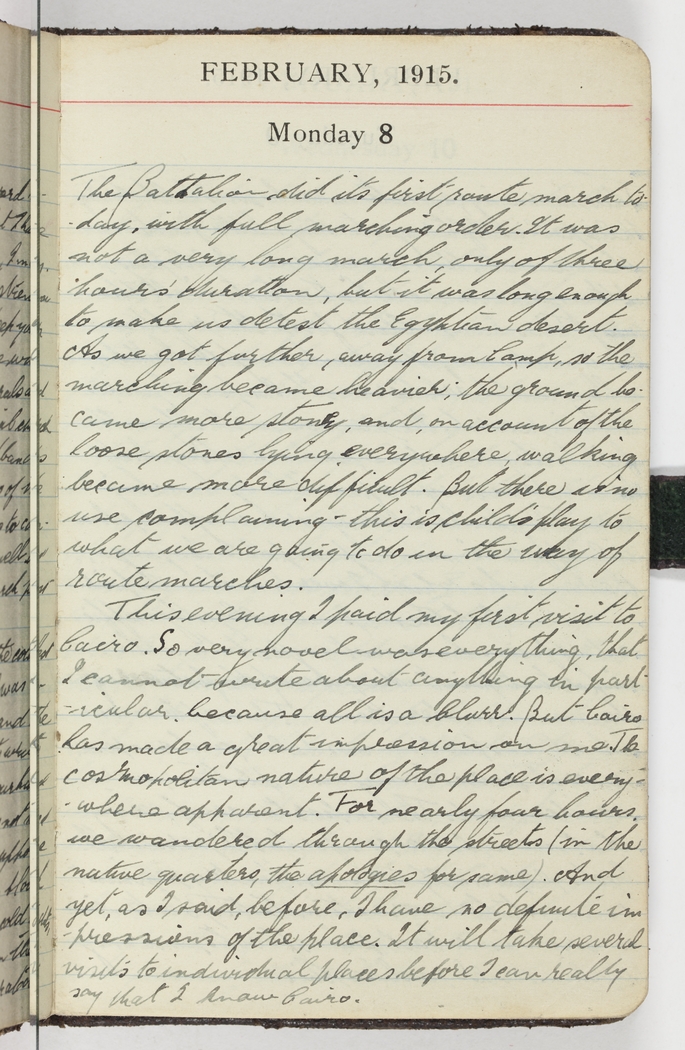 FEBRUARY, 1915.
Monday 8
The Battalion did its first route march to-
-day, with full marching order. It was
not a very long march, only of three
hours' duration, but it was long enough
to make us detest the Egyptian desert.
As we got further, away from Camp, so the
marching became heavier; the ground be-
came more stony, and, on account of the
loose stones lying everywhere, walking
became more difficult. But there is no
use complaining - this is child's play to
what we are going to do in the way of
route marches.
This evening I paid my first visit to
Cairo. So very novel was everything, that
I cannot write about anything in part-
-icular, because all is a blurr. But Cairo
has made a great impression on me. The
cosmopolitan nature of the place is every-
-where apparent. For nearly four hours,
we wandered through the streets (in the
native quarters, the apologies for same). And
yet, as I said, before, I have no definite im
-pressions of the place. It will take several
visits to individual places before I can really
say that I know Cairo.